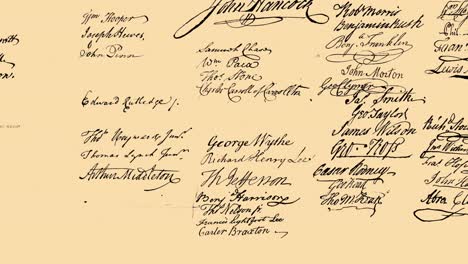 Wm Hooper
Joseph Hewes,
John Penn
Edward Rutledge /.
Thos Heyward Junr.
Thomas Lynch Junr.
Arthur Middleton
John Hancock
Samuel Chase
Wm. Paca
Thos. Stone
Charles Carroll of Carrollton
George Wythe
Richard Henry Lee
Th Jefferson
Benj Harrison
Thos Nelson jr.
Francis Lightfoot Lee
Carter Braxton
Robt Morris
Benjamin Rush
Benj. Franklin
John Morton
Geo Clymer
Jas. Smith
Geo. Taylor
James Wilson
Geo. Ross
Caesar Rodney
Geo Read
Tho M:Kean
Lewis
Abra Cl